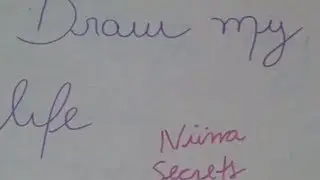 Draw my
life
Niina
Secrets